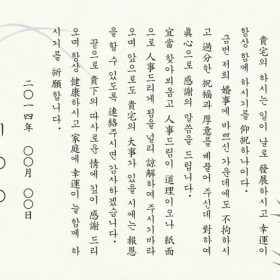 貴宅의 하시는 일이 날로 發展하시고 幸運이
항상 함께 하시기를 仰祝하나이다.
금번 저희 婚事에 바쁘신 가운데에도 不拘하시
고 過分한 祝福과 厚意를 베풀어 주신데 對하여
眞心으로 感謝의 말씀을 드립니다.
宜當 찾아뵈옵고 人事드림이 道理이오나 紙面
으로 人事드리게 됨을 널리 諒解하여 주시기바라
오며 앞으로도 貴宅의 大事가 있을 시에는 報恩
을 할 수 있도록 連絡주시면 감사하겠습니다.
끝으로 貴下의 따사로운 情에 깊이 感謝 드리
오며 항상 健康하시고 家庭에 幸運이 늘 함께 하
시기를 祈願합니다.
二○一四年 ○○月 ○○日